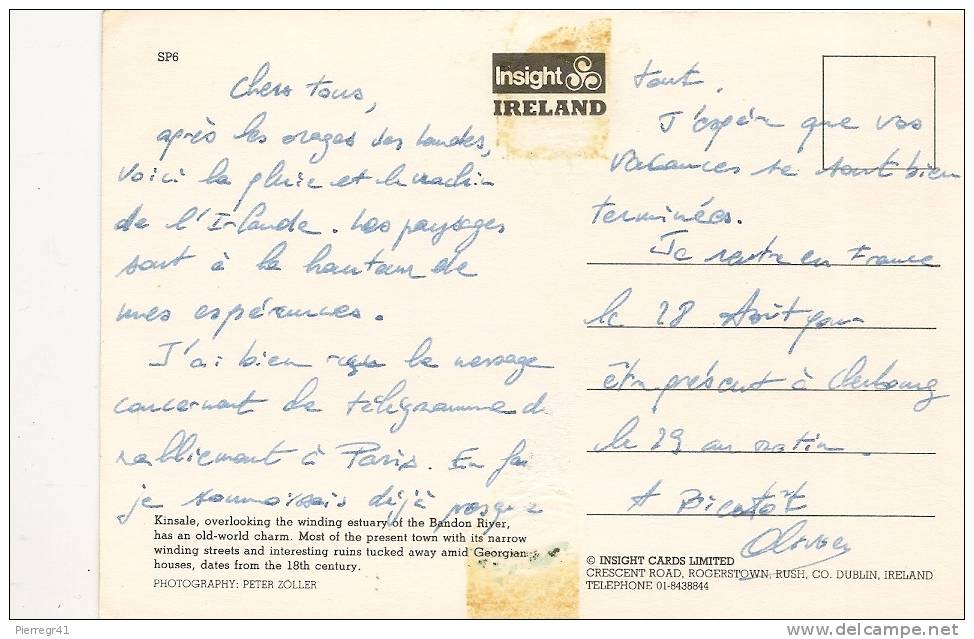 SP6
Insight
IRELAND
Chers tous,
après les orages des Landes,
voici la pluie et le crachin
de l'Irlande. Les paysages
sont à la hauteur de
mes espérances.
J'ai bien reçu le message
concernant le télégramme de
ralliement à Paris. En fait
je connaissais déjà presque
tout.
J'espère que vos
vacances se sont bien
terminées.
Je rentre en France
le 28 Août pour
être présent à Cherbourg
le 29 au matin.
A Bientôt
Kinsale, overlooking the winding estuary of the Bandon River,
has an old-world charm. Most of the present town with its narrow
winding streets and interesting ruins tucked away amid Georgian
houses, dates from the 18th century.
PHOTOGRAPHY: PETER ZÖLLER
© INSIGHT CARDS LIMITED
CRESCENT ROAD, ROGERSTOWN, RUSH, CO. DUBLIN, IRELAND
TELEPHONE 01-8438844
Pierregr41
www.delcampe.net